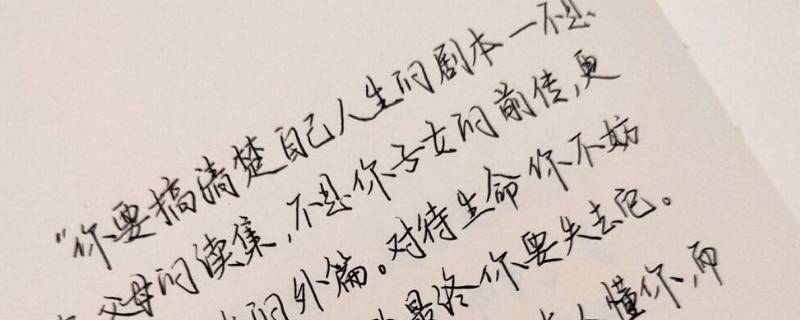 "你要搞清楚自己人生的剧本一不是
父母的续集,不是你子女的前传,更
的外篇。对待生命你不妨
最终你要失去它。
人懂你,而